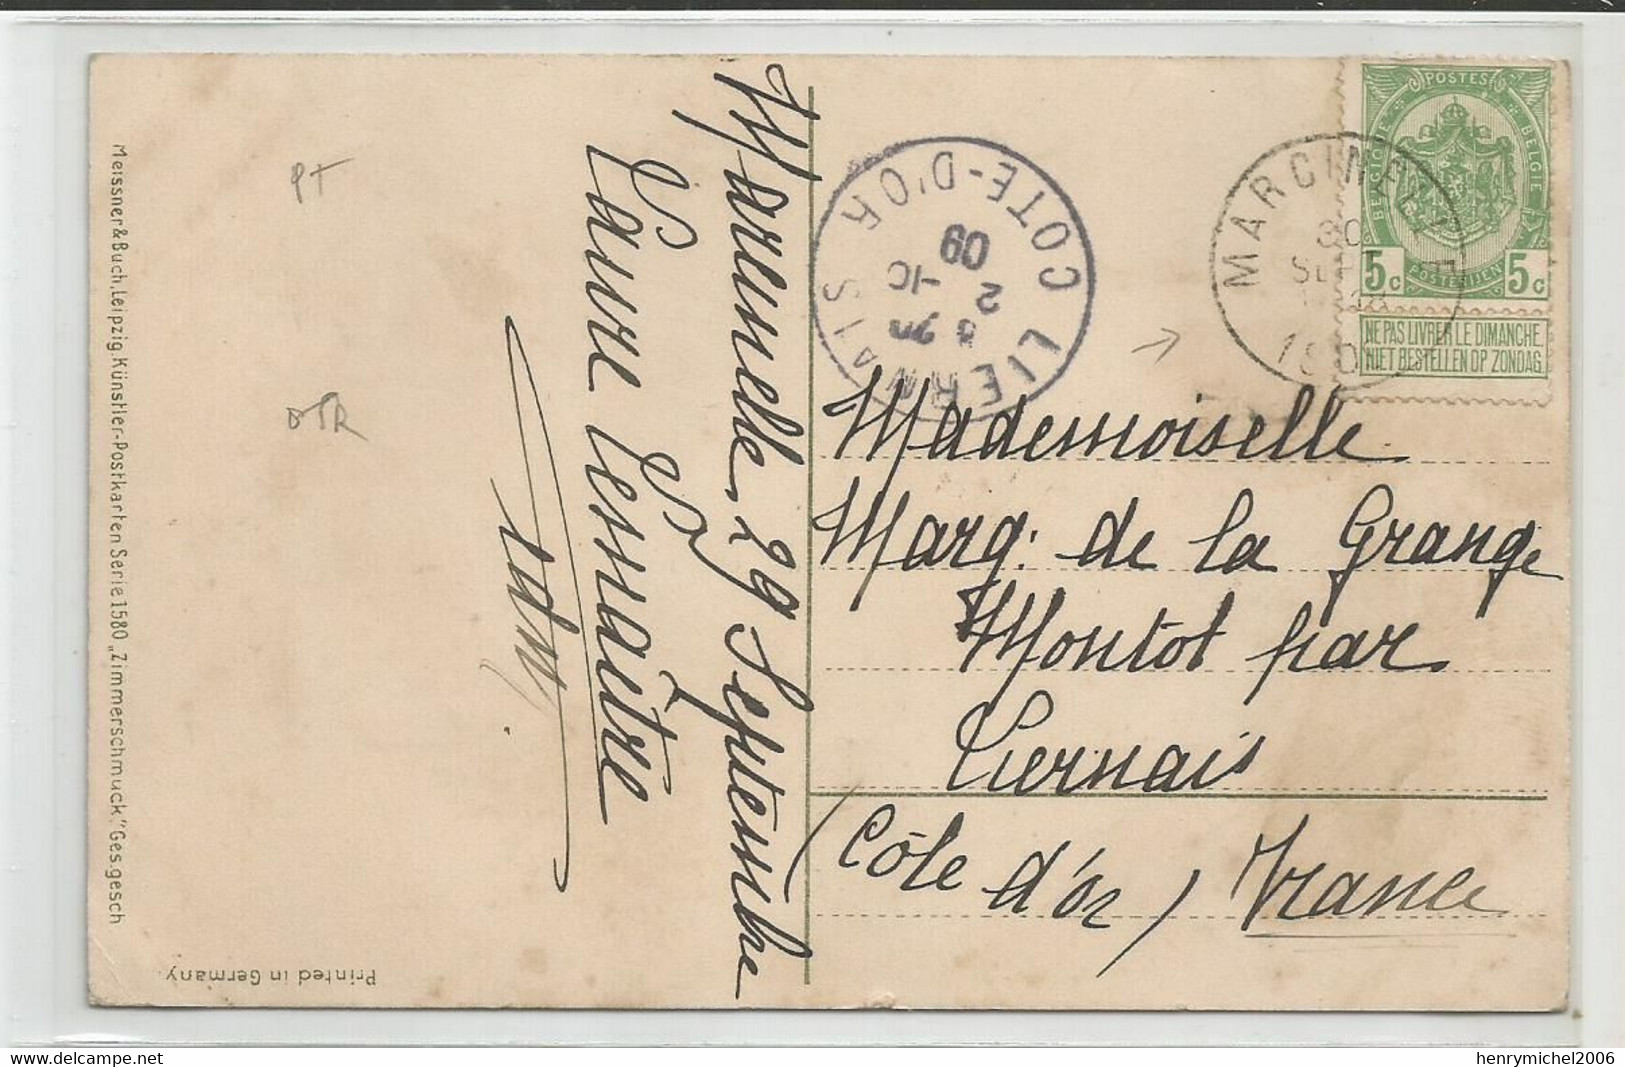 Marcinelle, 29 Septembre
Laure Lemaître
Mademoiselle
Marg. de la Grange
Montot par
Liernais
(Côte d'or) France
POSTES
BELGIQUE
BELGIE
5c POSTERIJEN 5c
NE PAS LIVRER LE DIMANCHE
NIET BESTELLEN OP ZONDAG
MARCINELLE
30
SEPT
LIERNAIS
COTE-D'OR
2 -10
09
Meissner & Buch, Leipzig. Künstler-Postkarten Serie 1580 „Zimmerschmuck." Ges. gesch
Printed in Germany.
henrymichel2006
http://www.delcampe.net